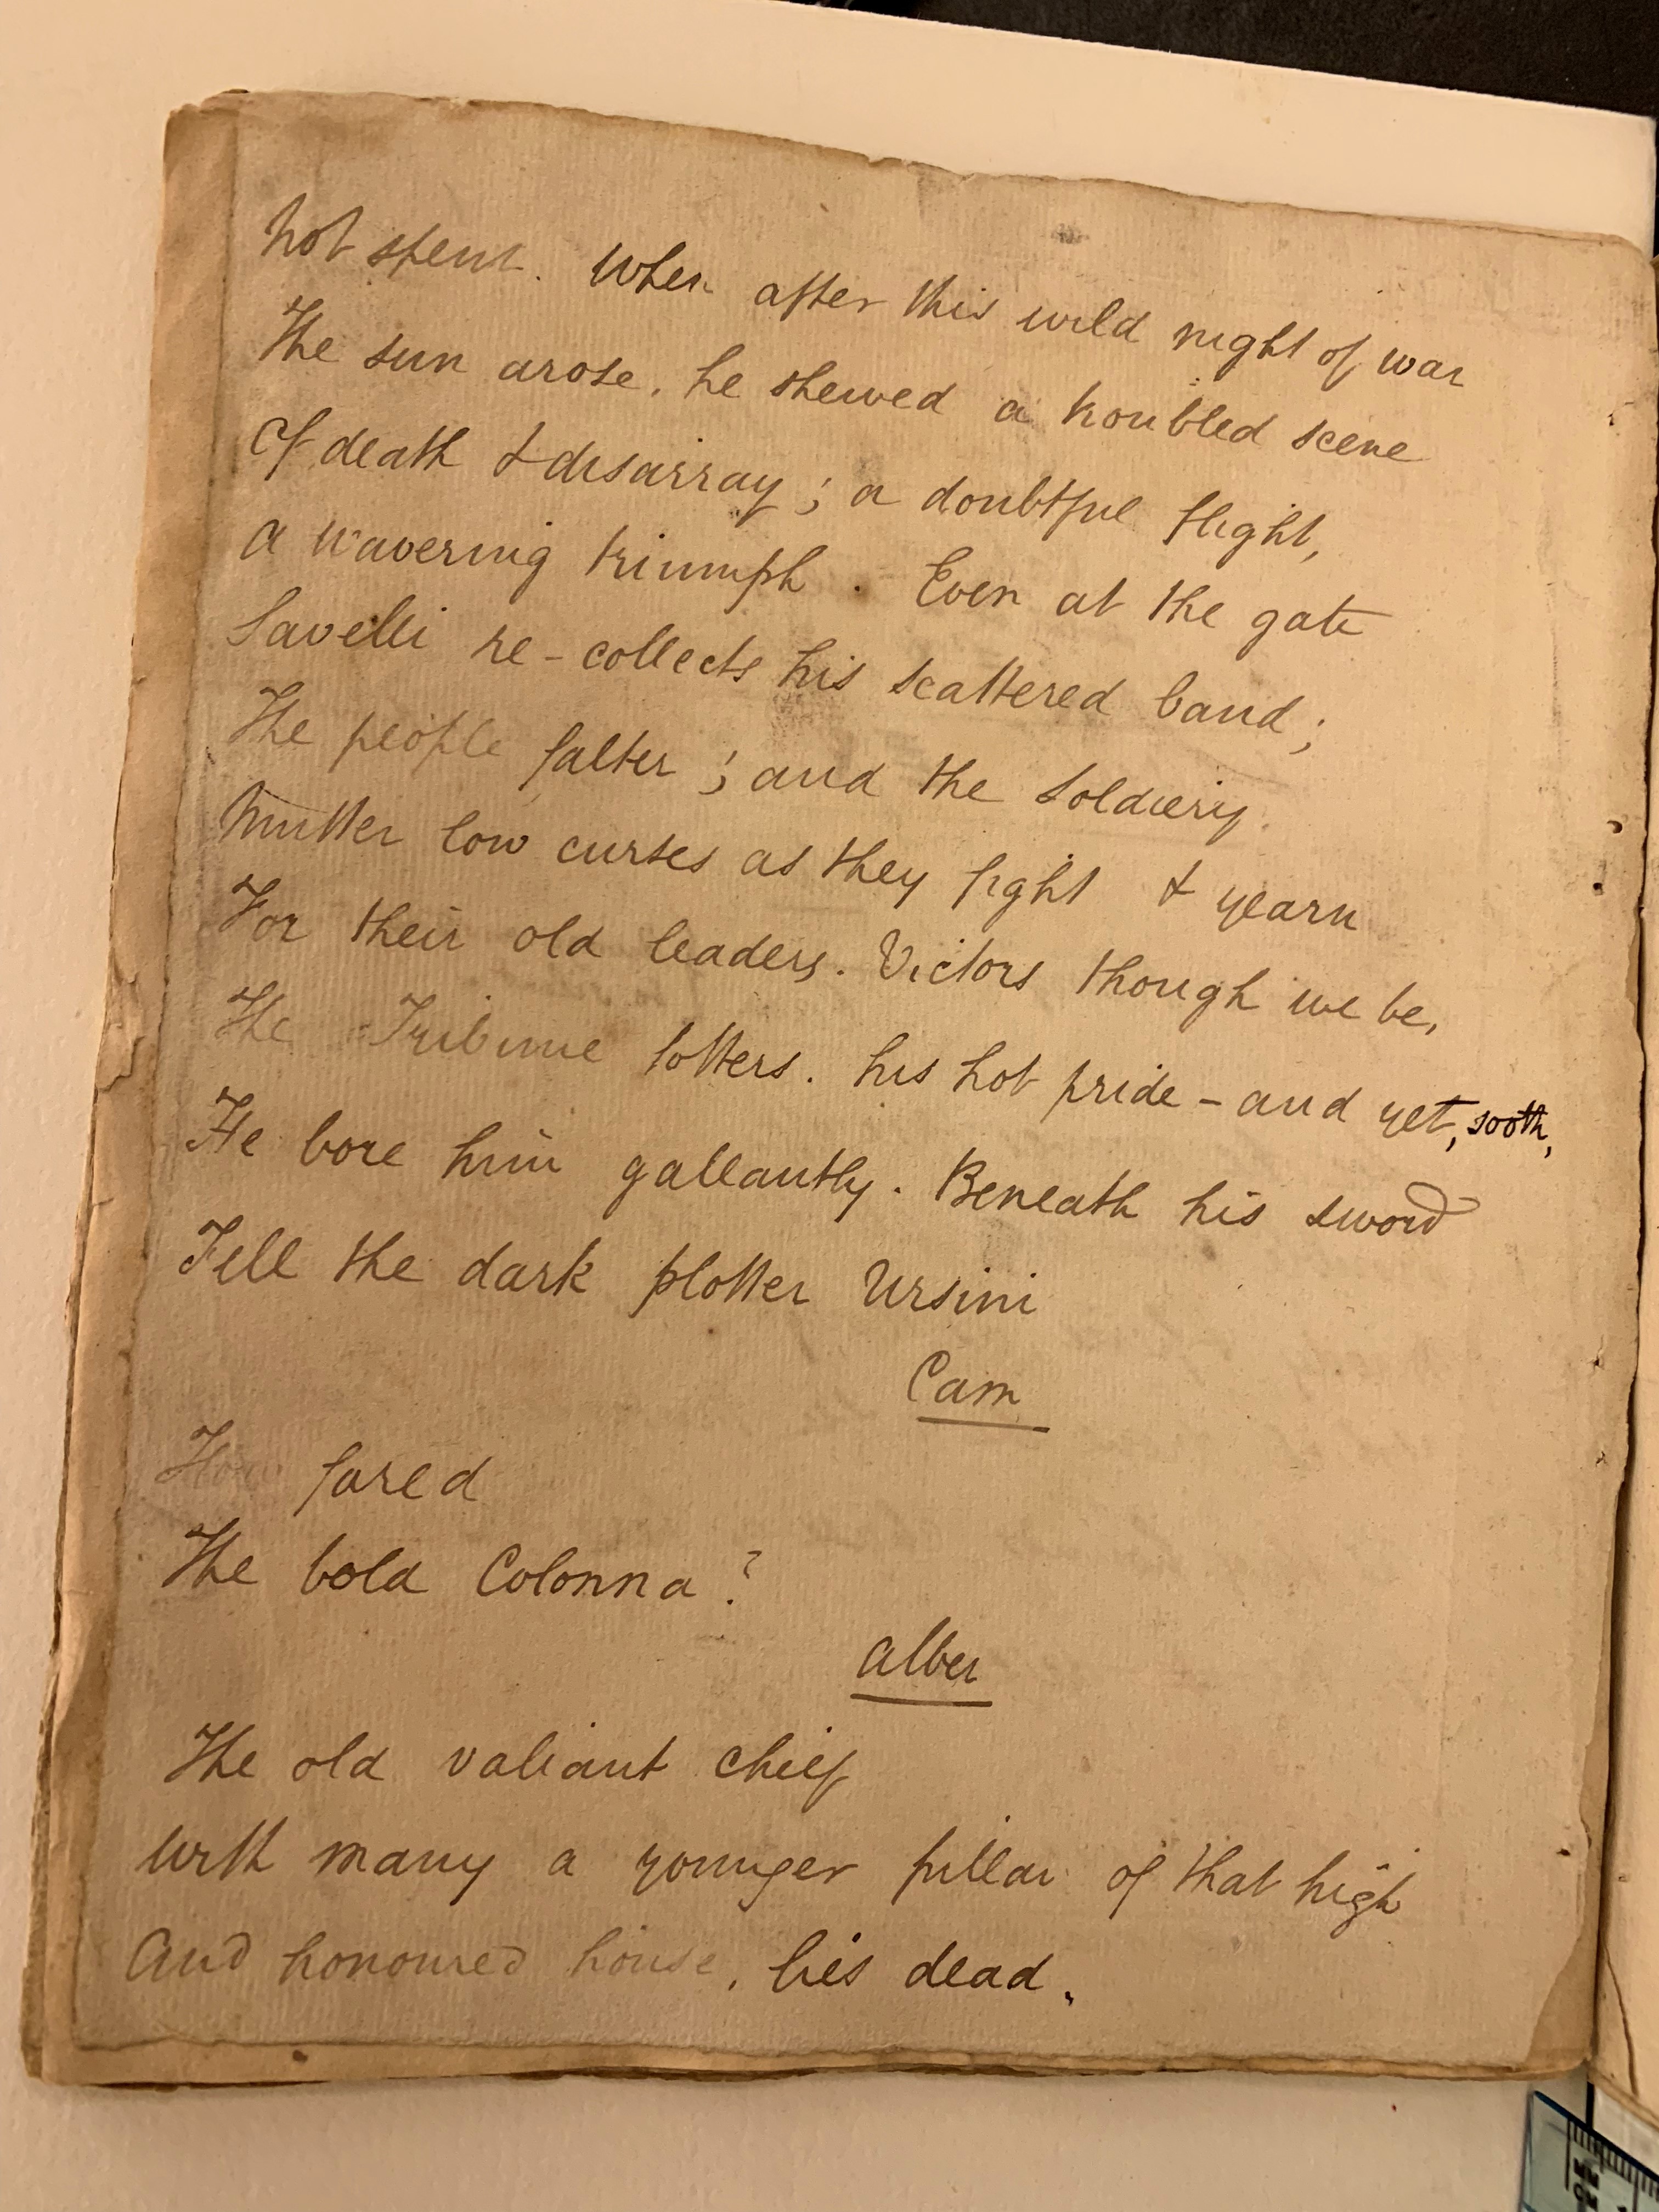 Not spent. When after this wild night of war
The sun arose, he shewed a troubled scene
Of death & disarray; a doubtful flight,
A wavering triumph. Even at the gate
Savelli re-collects his scattered band;
The people falter; and the soldiery
Mutter low curses as they fight & yearn
For their old leaders. Victors though we be,
The Tribune totters. his hot pride - and yet, sooth,
He bore him gallantly. Beneath his sword
Fell the dark plotter Ursini
Cam
How fared
The bold Colonna?
Alber
The old valiant chief
With many a younger pillar of that high
And honoured house, lies dead.
MM
CM